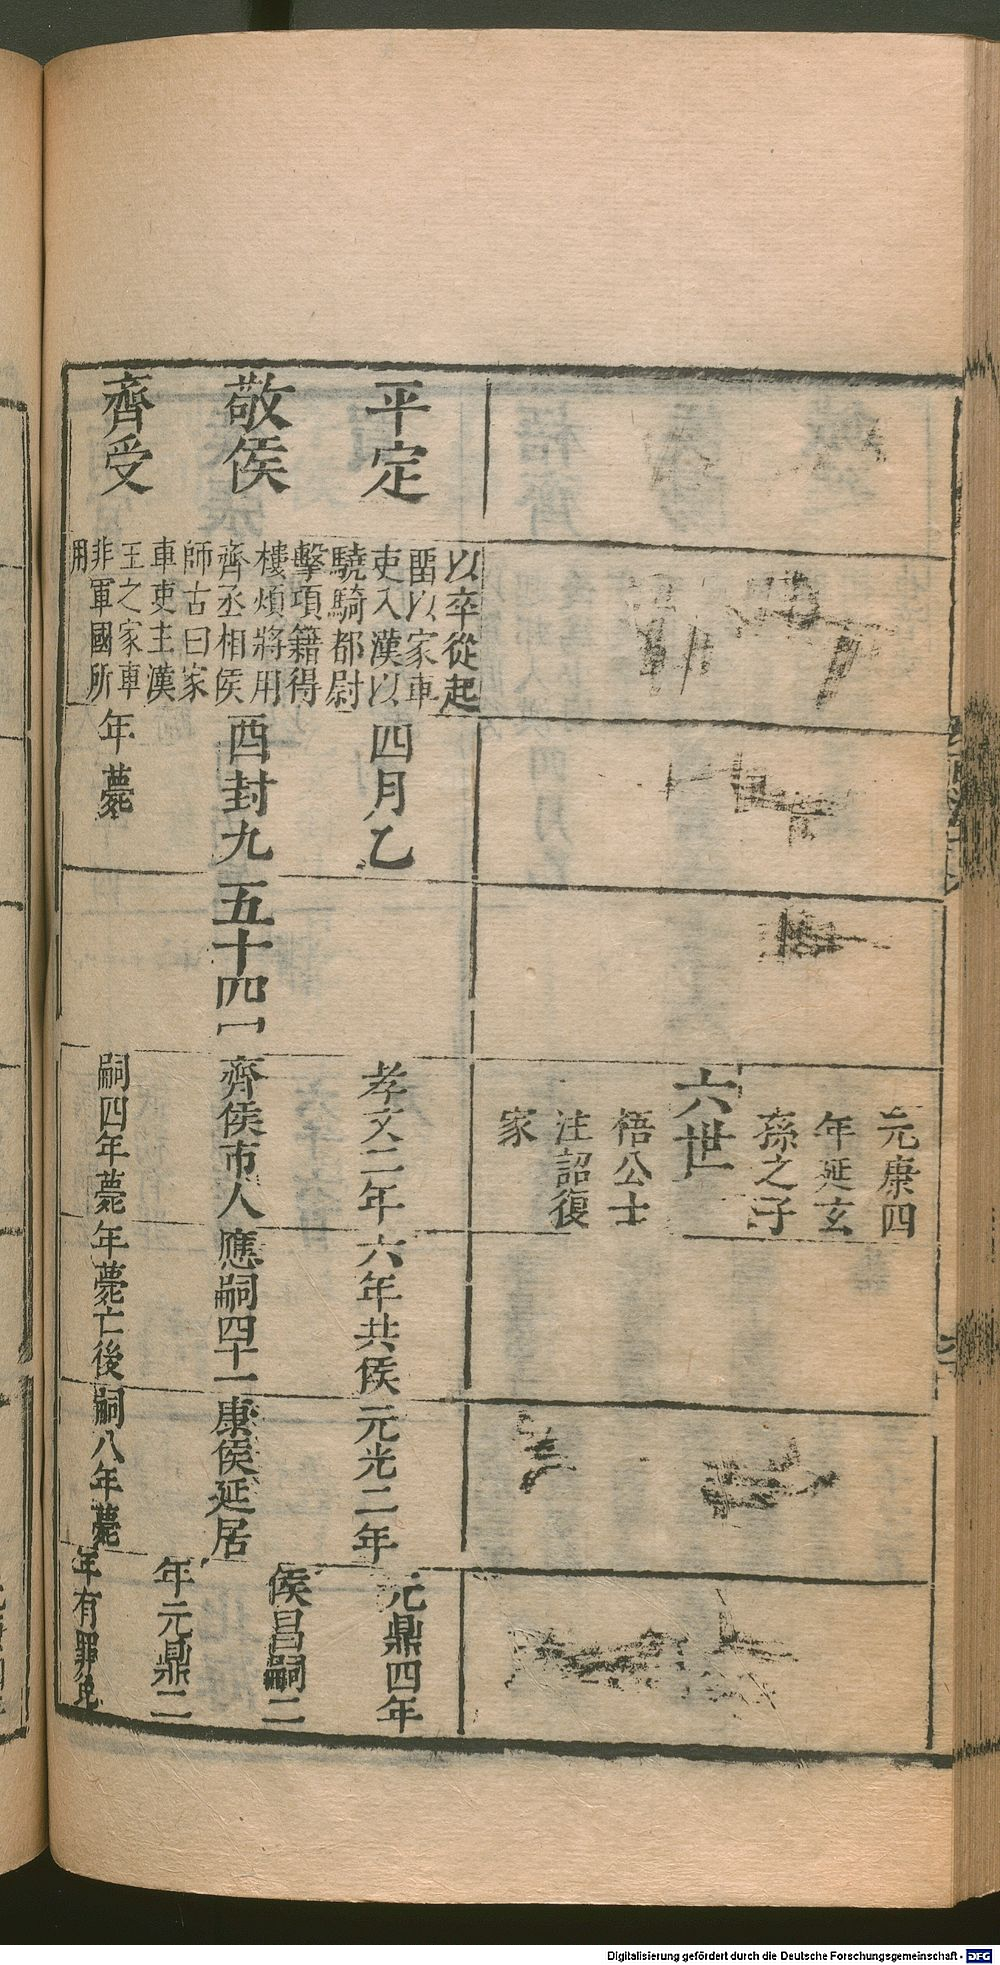 元康四
年延玄
孫之子
六世
梧公士
注詔復
家
平定
敬侯
齊受
以卒從起
畱以家車
吏入漢以
驍騎都尉
擊項籍得
樓煩將用
齊丞相侯
師古曰家
車吏主漢
王之家車
非軍國所
用
四月乙
酉封九
年薨
五十四
孝文二年
齊侯市人
嗣四年薨
六年共侯
應嗣四十一
年薨亡後
元光二年
康侯延居
嗣八年薨
元鼎四年
侯昌嗣二
年元鼎二
年有罪免
Digitalisierung gefördert durch die Deutsche Forschungsgemeinschaft - DFG